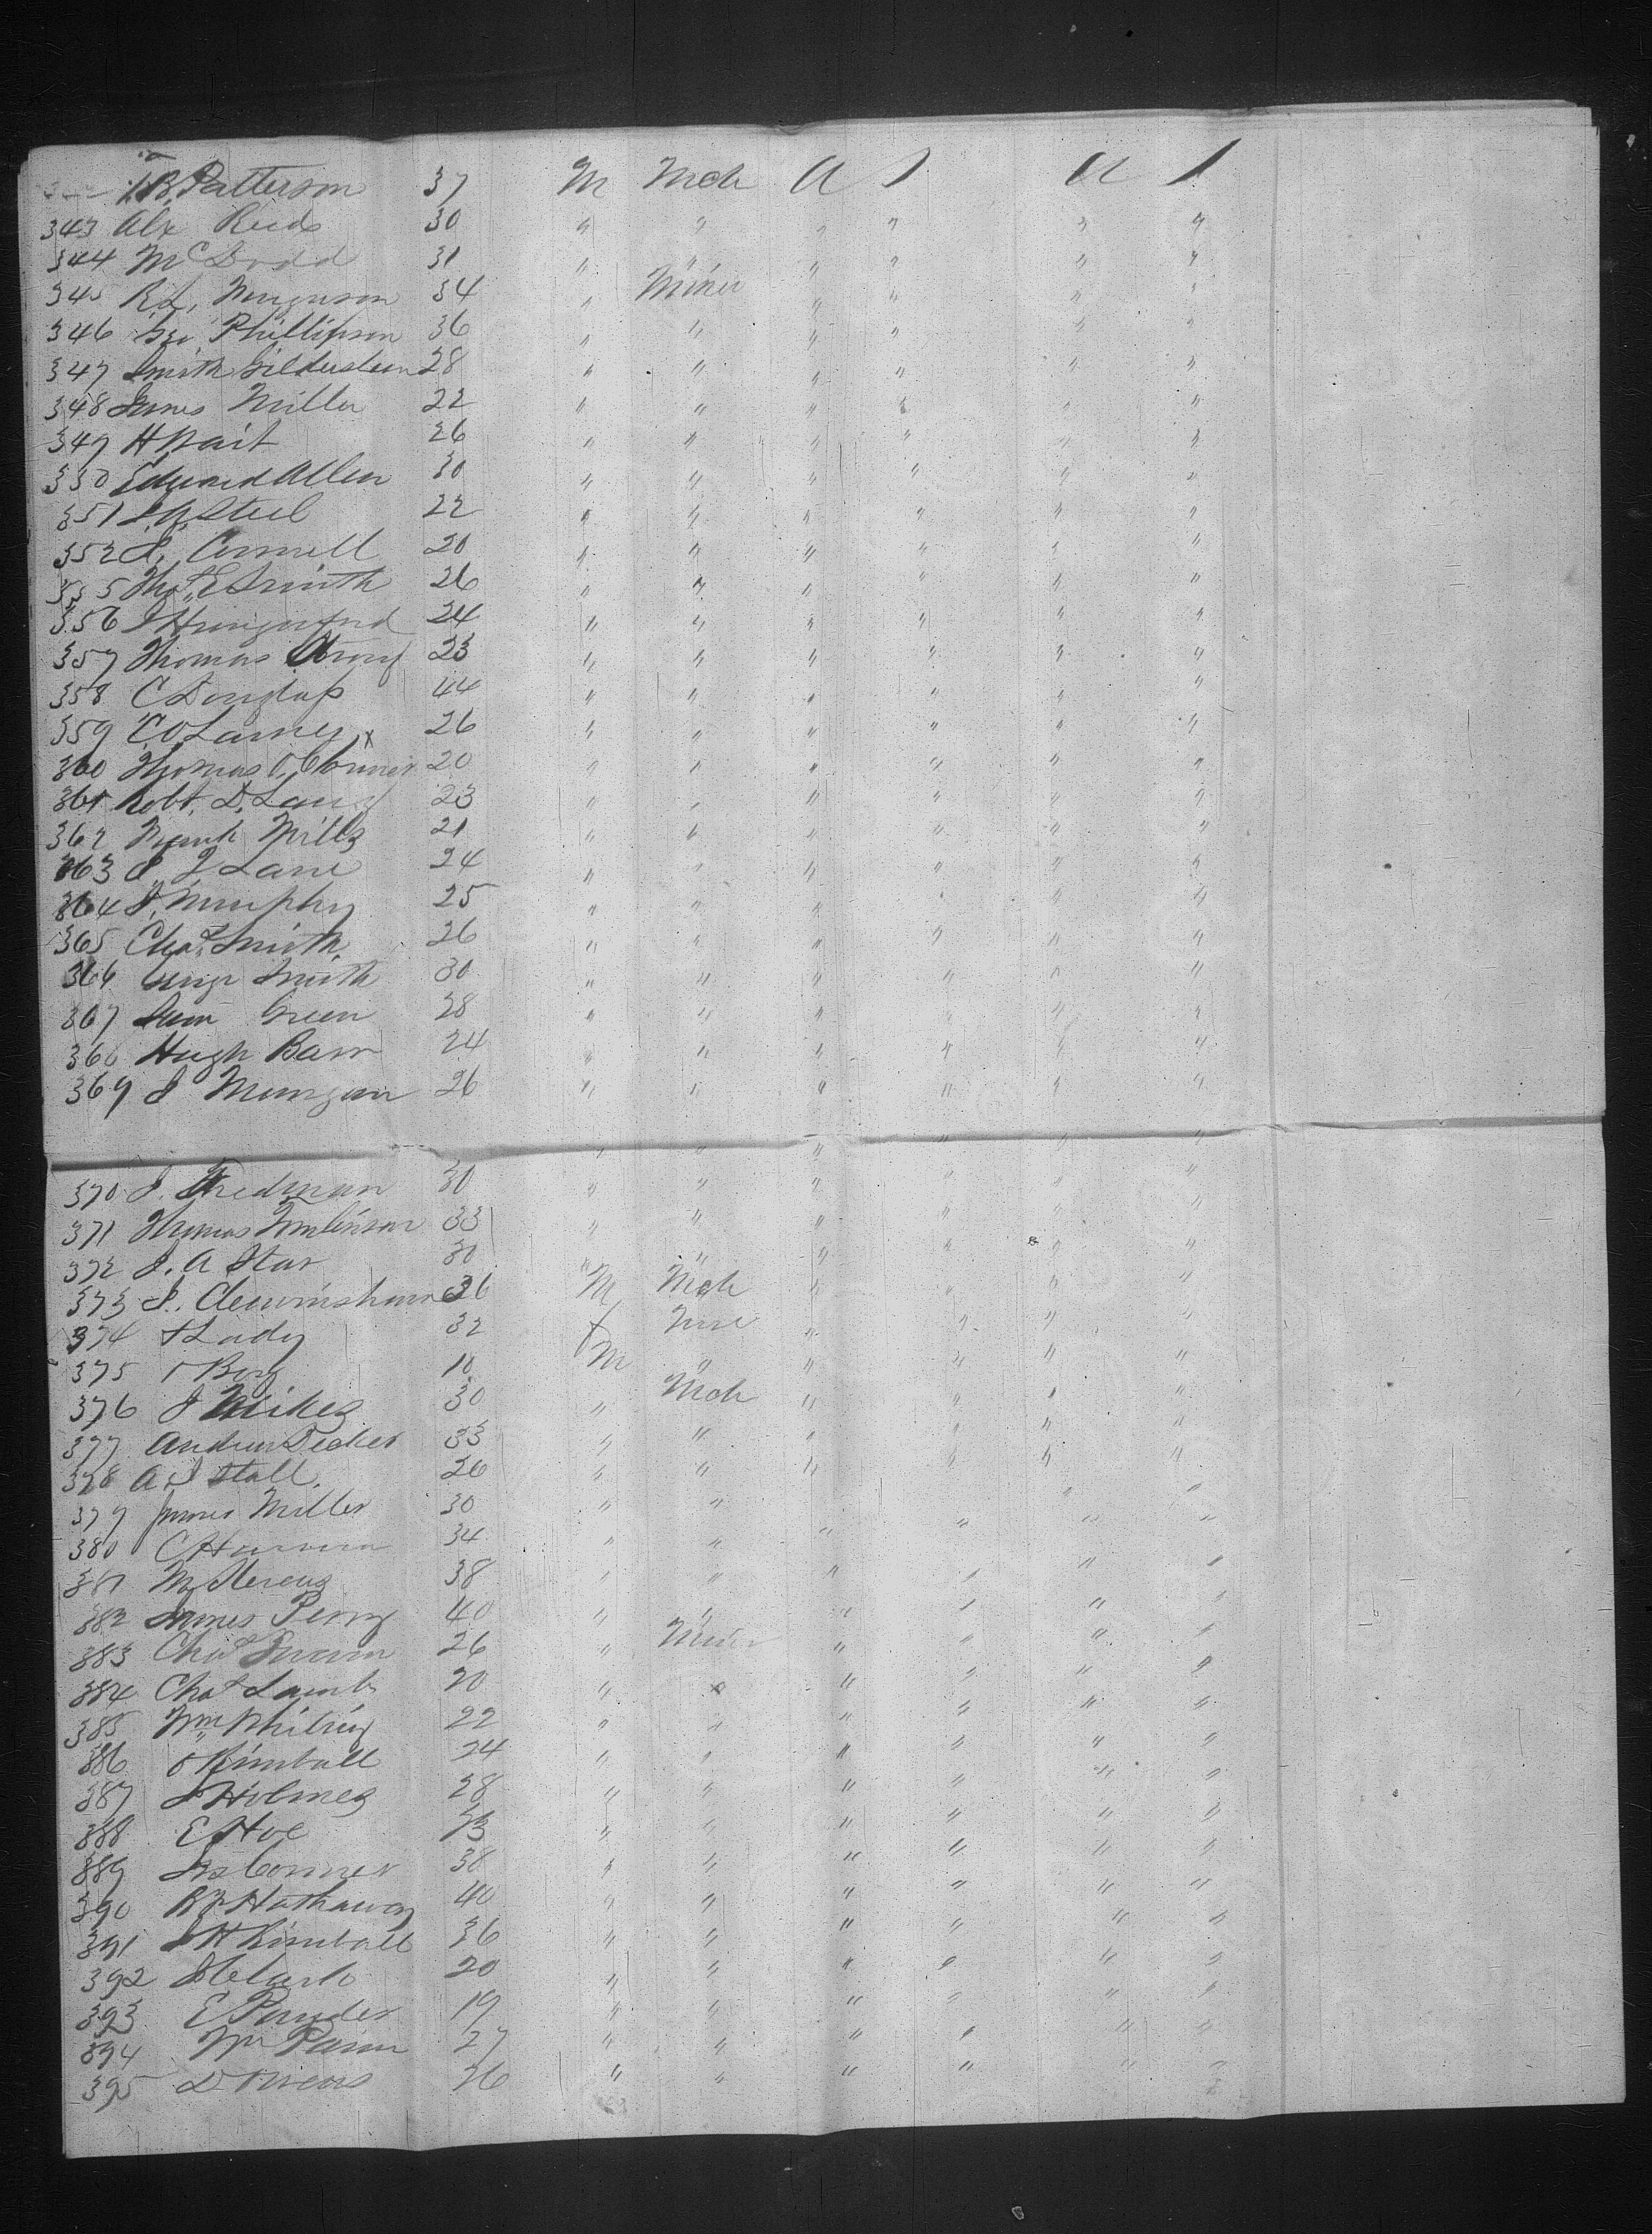 T.B. Patterson 37 M Mch A S A S
343 Alx Reids 30 " " " " " "
344 Mc Dodd 31 " " " " " "
345 R.L. Furgurson 34 " Miner " " " "
346 Geo. Phillipson 36 " " " " " "
347 Smith Gildersleen 28 " " " " " "
348 James Miller 22 " " " " " "
349 H Wait 26 " " " " " "
350 Edward Allen 30 " " " " " "
351 J.A. Steel 22 " " " " " "
352 J. Cornell 20 " " " " " "
355 Thos E Smith 26 " " " " " "
356 J Hungerford 24 " " " " " "
357 Thomas 23 " " " " " "
358 C Douglass 44 " " " " " "
359 C.O. Larney x 26 " " " " " "
360 Thomas 20 " " " " " "
361 Robt. D. Laug 23 " " " " " "
362 Frank Mills 21 " " " " " "
363 J. J Lane 24 " " " " " "
364 J. Murphy 25 " " " " " "
365 Chas Smith 26 " " " " " "
366 George Smith 30 " " " " " "
367 Sam Green 28 " " " " " "
368 Hugh Barr 24 " " " " " "
369 J Morgan 26 " " " " " "
370 J. Fredman 30 " " " " " "
371 Thomas Tomlinson 33 " " " " " "
372 J. A Star 30 " " " " " "
373 J. 36 M Mch " " " "
374 " Lady 32 f " " " "
375 " Boy 10 M " " " " "
376 J Mikes 30 " Mch " " " "
377 Andrew Decker 33 " " " " " "
378 A J Hall 26 " " " " " "
379 James Miller 30 " " " "
380 C Hannan 34 " " " " " "
381 M 38 " " " " " "
382 James Perry 40 " " " " " "
383 Chas Swann 26 " Miner " " " "
384 Chas Lamb 20 " " " " " "
385 Wm Whiting 22 " " " " " "
386 O Kimball 24 " " " " " "
387 J Holmes 28 " " " " " "
388 E Hoe 33 " " " " " "
389 Jas Conner 38 " " " " " "
390 R P Hathaway 40 " " " " " "
391 J H Kimball 36 " " " " " "
392 J Clark 20 " " " " " "
393 E Pander 19 " " " " " "
394 Wm 27 " " " " " "
395 D Owens 26 " " " " " "